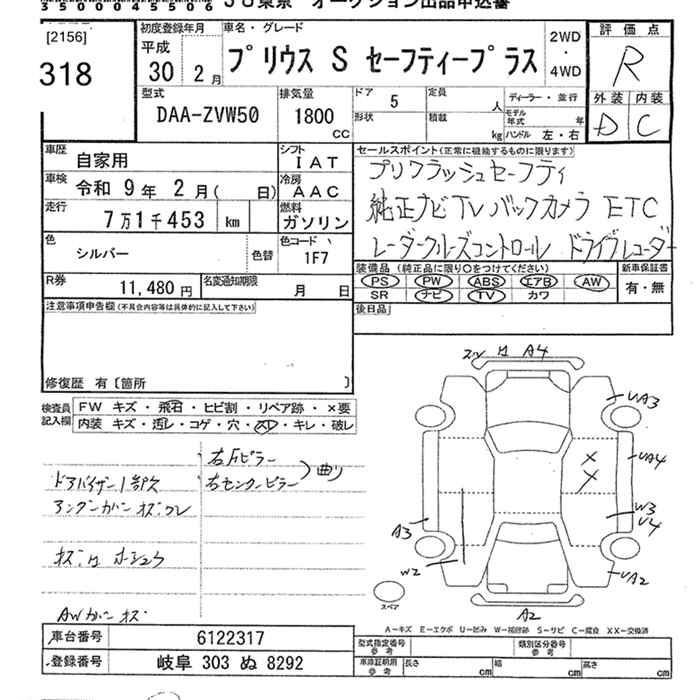 35000045506 JU東京 オークション出品申込書
[2156]
318
初度登録年月
平成
30 2月
車名・グレード
プリウス S セーフティープラス
2WD
・
4WD
評価点
R
外装 内装
D C
型式
DAA-ZVW50
排気量
1800
CC
ドア 5
形状
定員 人
積載 kg
ディーラー・並行
モデル年式 年
ハンドル 左・右
車歴 自家用
シフト IAT
車検 令和 9年 2月( 日)
冷房 AAC
走行 7万1千453 km
燃料 ガソリン
色 シルバー 色替
色コード 1F7
R券 11,480円
名変通知期限 月 日
セールスポイント(正常に機能するものに限ります)
プリクラッシュセーフティ
純正ナビ TV バックカメラ ETC
レーダークルーズコントロール ドライブレコーダー
装備品 (純正品に限り○をつけてください)
PS PW ABS エアB AW
SR ナビ TV カワ
新車保証書
有・無
後日品
注意事項申告欄(不具合内容等は具体的に記入して下さい)
修復歴 有〔箇所 〕
検査員
記入欄
FW キズ・飛石・ヒビ割・リペア跡・×要
内装 キズ・汚レ・コゲ・穴・スレ・キレ・破レ
右Fピラー
右センターピラー
曲り
ドアバイザー1部欠
アンダーカバー キズ ワレ
キズ・凹 ホシュウ
AWカバー キズ
凹 A4
UA3
UA4
W3
U4
UA2
A3
W2
A2
X
X
スペア
A-キズ E-エクボ U-凹み W-補修跡 S-サビ C-腐食 XX-交換済
車台番号 6122317
登録番号 岐阜 303 ぬ 8292
型式指定番号
参考
類別区分番号
参考
車庫証明用
参考
長さ cm 幅 cm 高さ cm